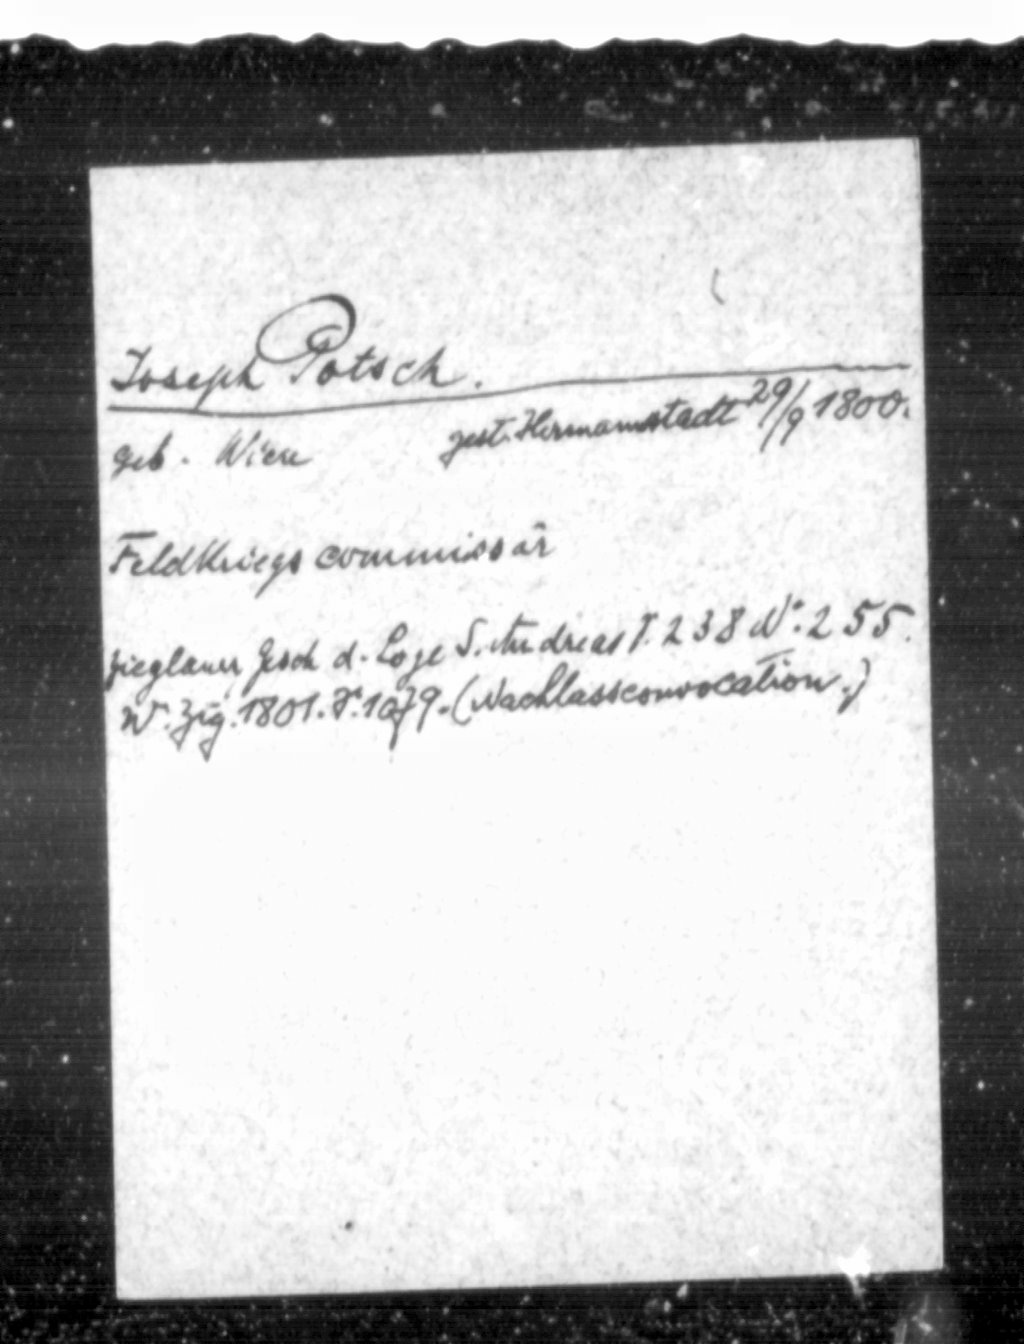 Joseph Potsch.
geb. Wien gest. Hermannstadt 29/9 1800.
Feldkriegscommissär
Zieglauer, Gesch d. Loge S. Andreas S. 238 No. 255.
W. Ztg. 1801. S. 1079. (Nachlassconvocation.)